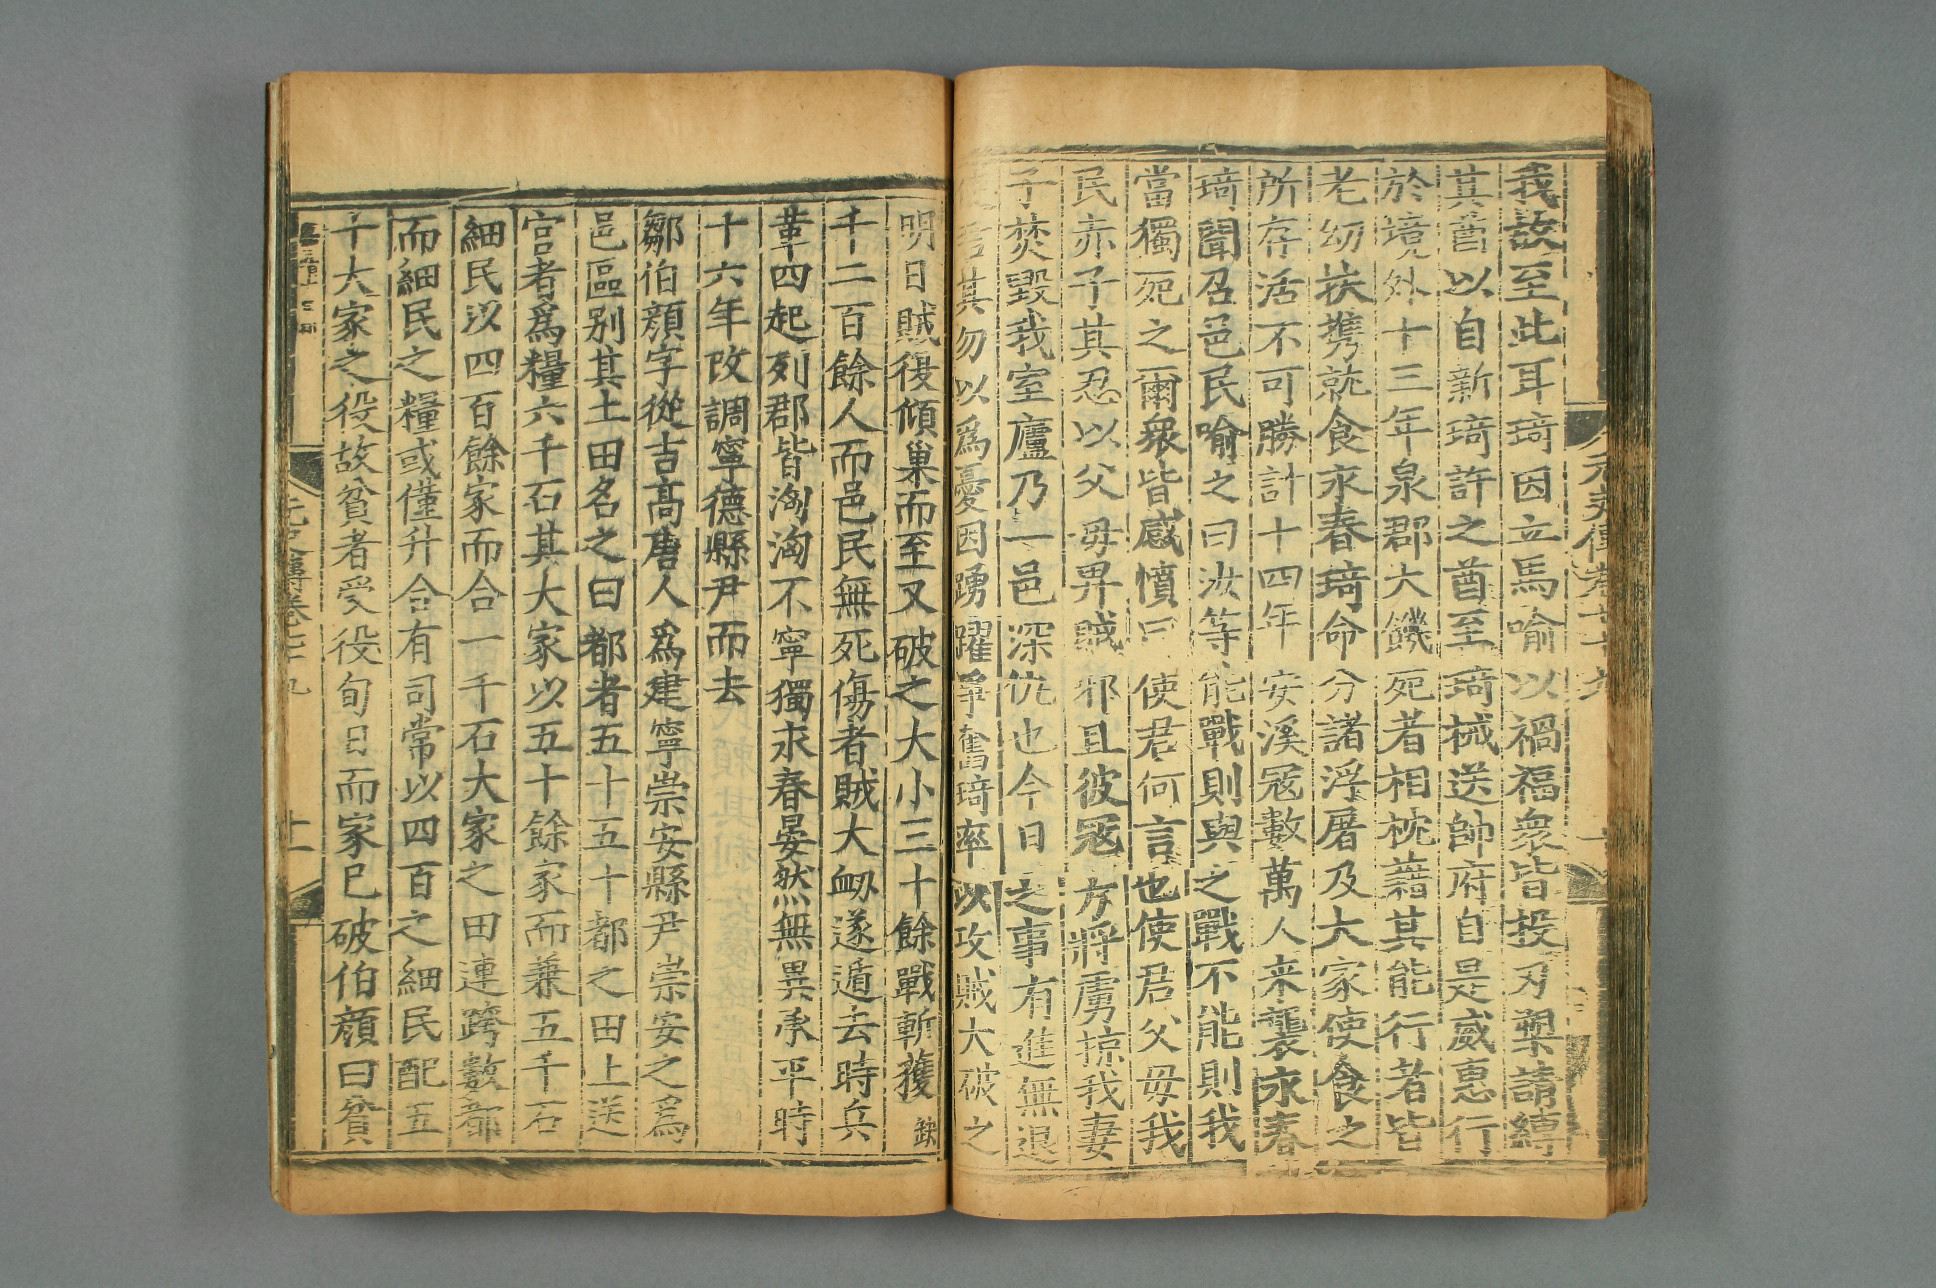 元史列傳卷七十九
我故至此耳琦因立馬喻以禍福衆皆投刃槊請縛
其酋以自新琦許之酋至琦械送帥府自是威惠行
於境外十三年泉郡大饑死者相枕藉其能行者皆
老幼扶攜就食永春琦命分諸浮屠及大家使食之
所存活不可勝計十四年安溪冦數萬人来襲永春
琦聞召邑民喻之曰汝等能戰則與之戰不能則我
當獨死之爾衆皆感憤曰使君何言也使君父毋我
民赤子其忍以父毋畀賊邪且彼冦方將虜掠我妻
子焚毀我室廬乃一邑深仇也今日之事有進無退
使君其勿以爲憂因踴躍爭奮琦率以攻賊大破之
明日賊復傾巢而至又破之大小三十餘戰斬獲
千二百餘人而邑民無死傷者賊大衂遂遁去時兵
革四起列郡皆洶洶不寧獨永春晏然無異承平時
十六年改調寧德縣尹而去
鄒伯顔字從吉髙唐人爲建寧崇安縣尹崇安之爲
邑區别其土田名之曰都者五十五十都之田上送
官者爲糧六千石其大家以五十餘家而兼五千石
細民以四百餘家而合一千石大家之田連跨數都
而細民之糧或僅升合有司常以四百之細民配五
十大家之役故貧者受役旬日而家已破伯顔曰貧
元史列傳卷七十九
十一